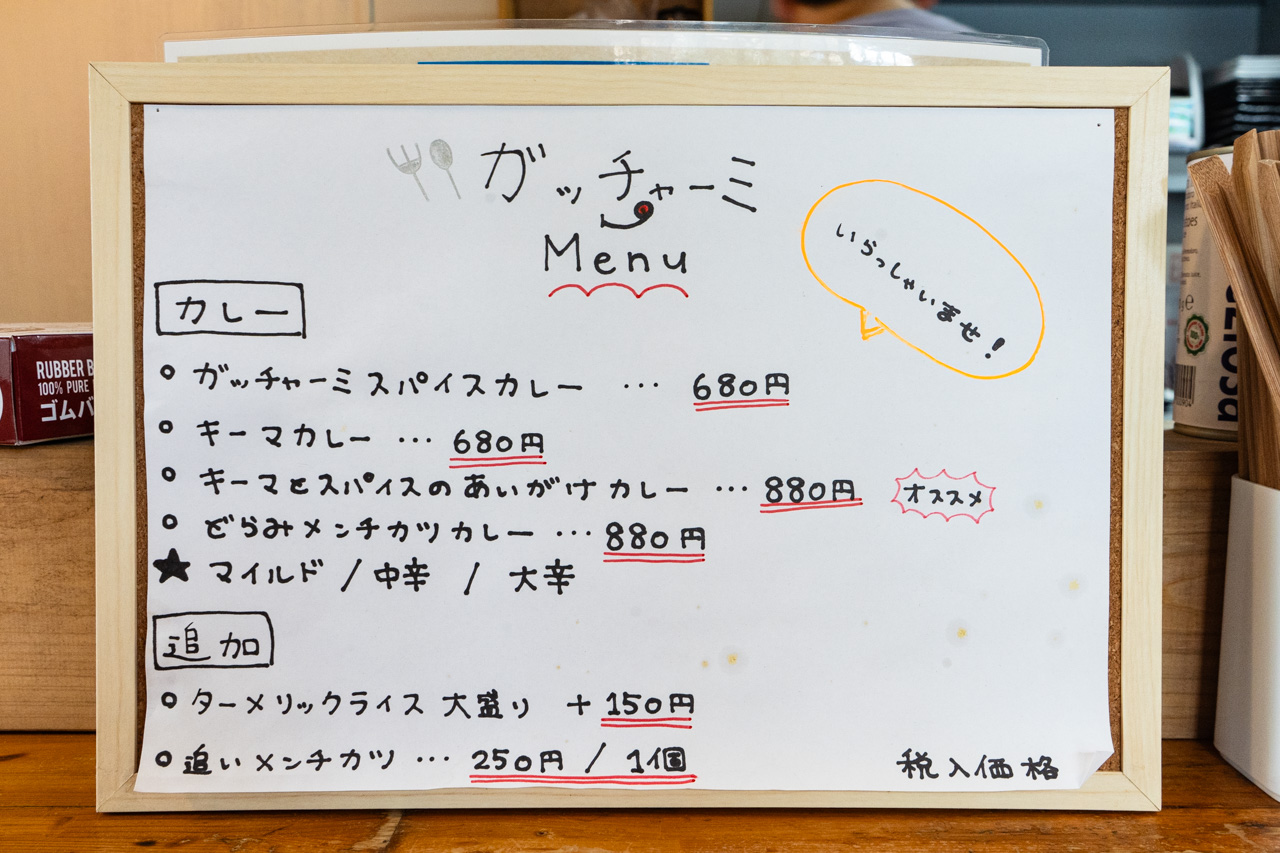 ガッチャーミ
Menu
いらっしゃいませ!
カレー
○ ガッチャーミスパイスカレー … 680円
○ キーマカレー … 680円
○ キーマとスパイスのあいがけカレー … 880円 オススメ
○ どらみメンチカツカレー … 880円
★ マイルド / 中辛 / 大辛
追加
○ ターメリックライス 大盛り +150円
○ 追いメンチカツ … 250円 / 1個
税入価格
RUBBER B
100% PURE
ゴムバ